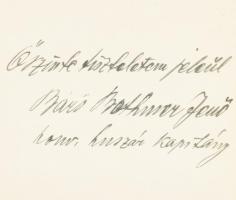 Őszinte tiszteletem jeléül
Báró Bothmer Jenő
honv. huszár kapitány